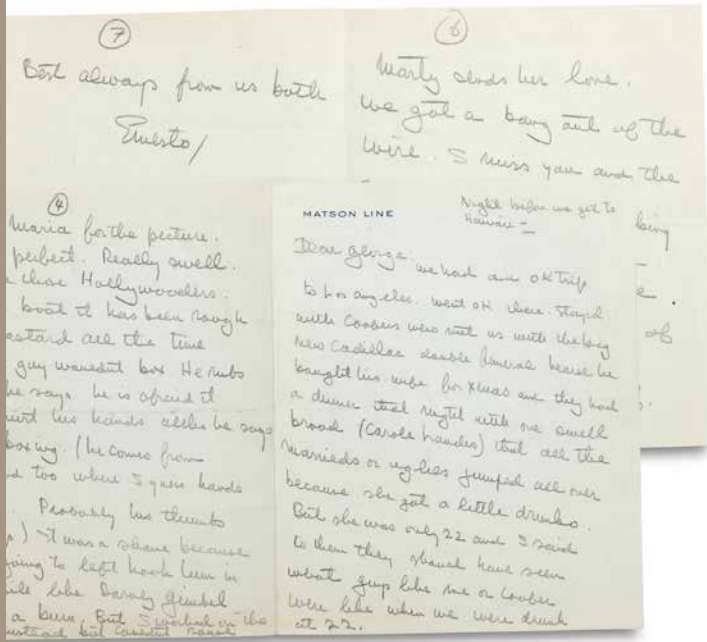 7
Best always from us both
Ernesto/
6
Marty sends her love.
We got a bang out of the
wire. I miss you and the
being
of
4
Maria for the picture.
perfect. Really swell.
chose Hollywooders.
boat it has been rough
bastard all the time
guy wouldn't box He rubs
he says he is afraid it
hurt his hands altho he says
boxing. (he comes from
too where I guess hands
Probably his thumbs
) It was a shame because
going to left hook him in
like Barney Gimbel
a bum. But I worked on the
instead but
MATSON LINE
Night before we get to
Hawaii —
Dear George:
we had an OK trip
to Los Angeles. Went OK there. Stayed
with Coopers who met us with the big
new Cadillac double funeral hearse he
bought his wife for Xmas and they had
a dinner that night with one swell
broad (Carole Landis) that all the
marrieds or uglies jumped all over
because she got a little drunko.
But she was only 22 and I said
to them they should have seen
what guys like me or Cooper
were like when we were drunk
at 22.